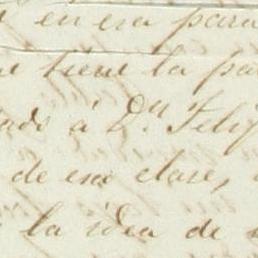 en esa para
tiene la pa
á Dn. Feli
de esa clase,
la idea de